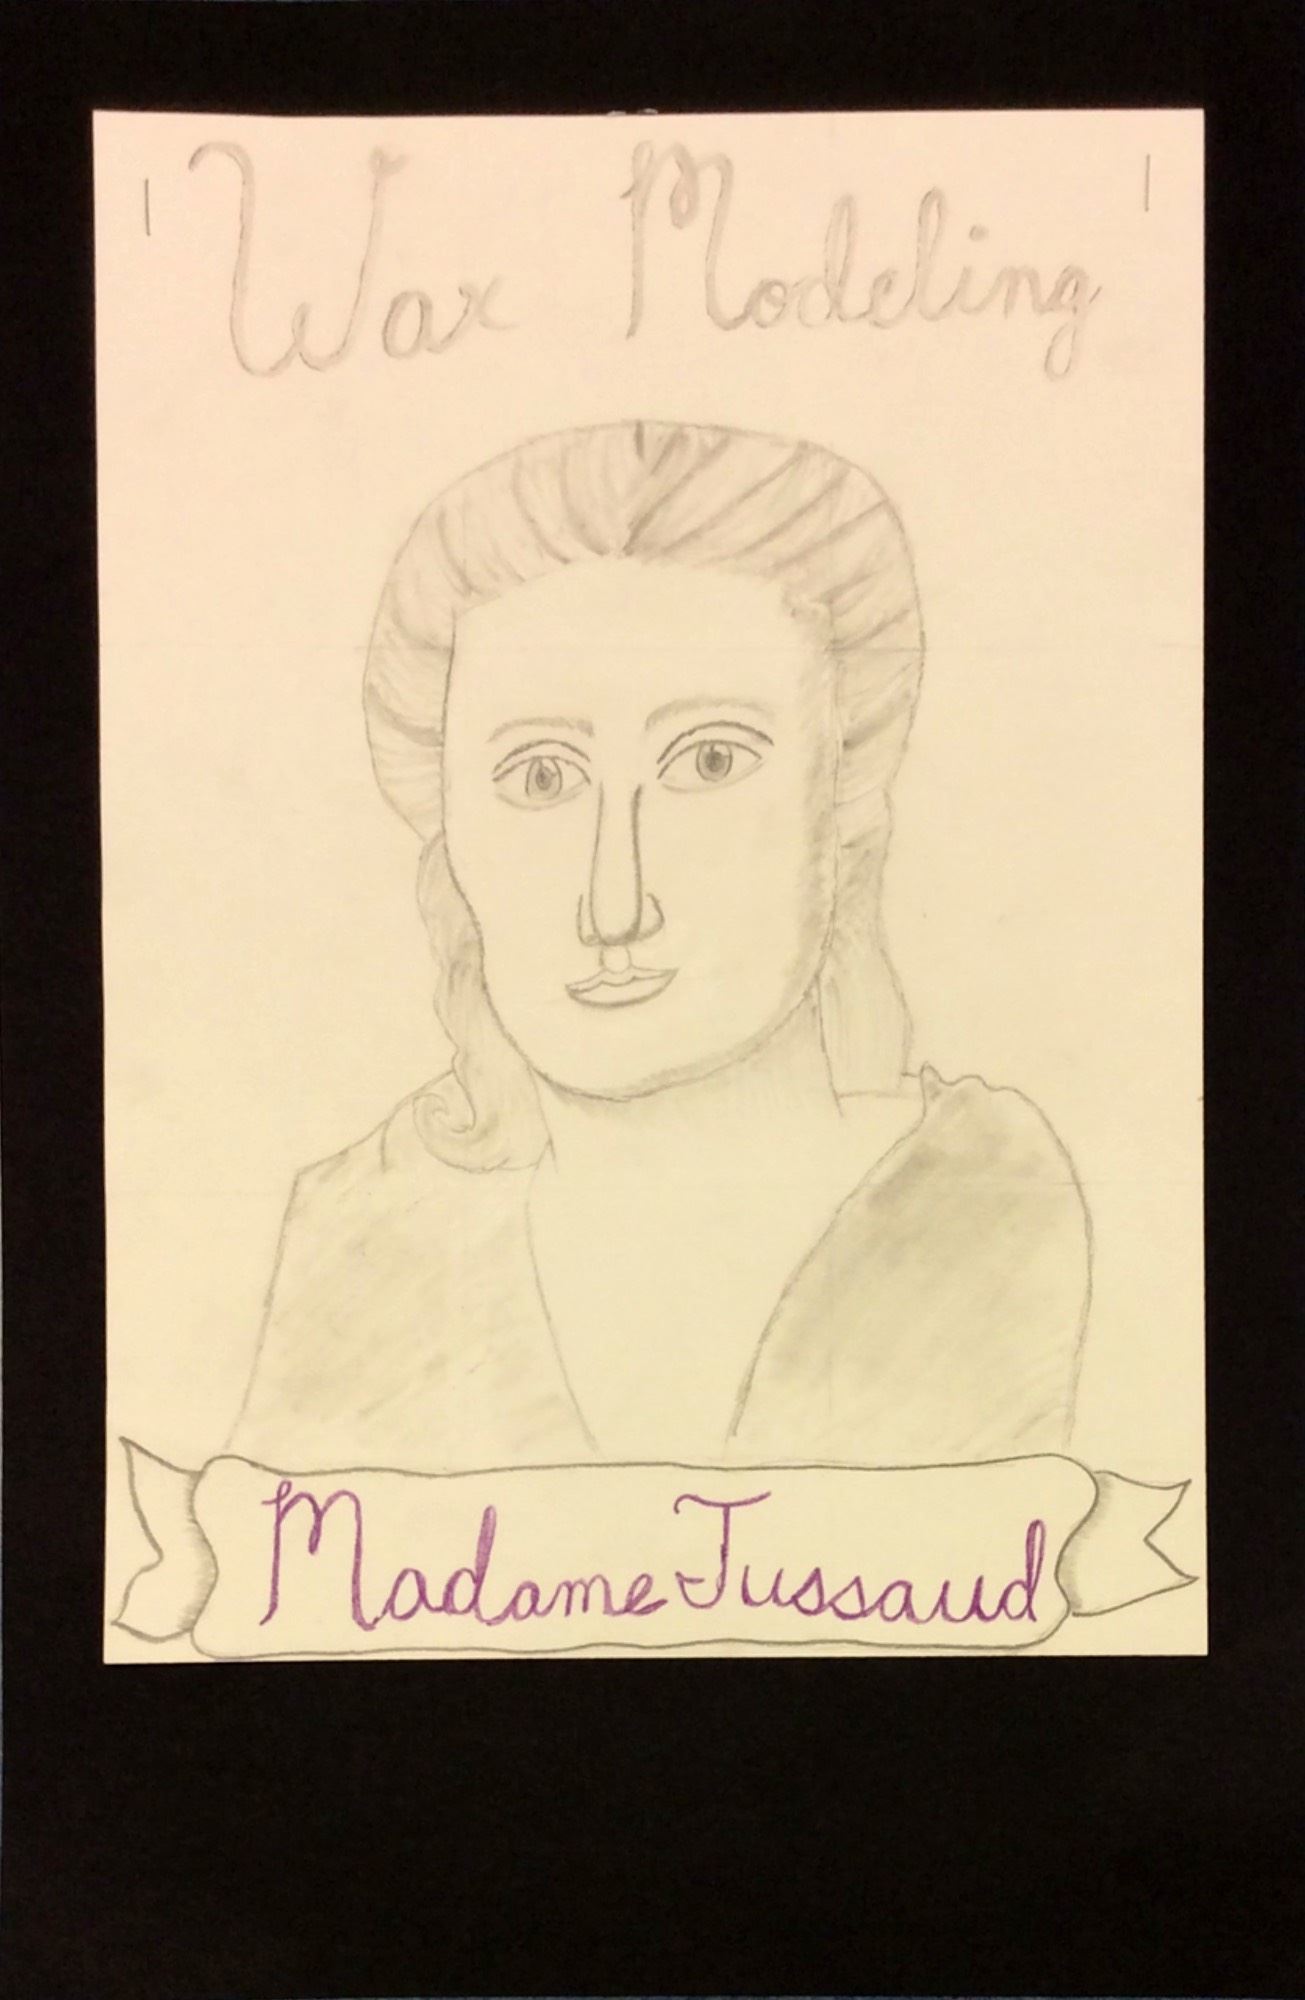 Wax Modeling
Madame Tussaud